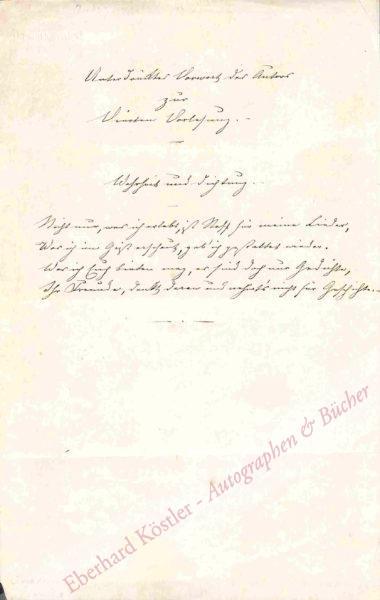 Unterdrücktes Vorwort des Autors
zur
Vierten Vorlesung. –
Wahrheit und Dichtung.
Nicht nur, was ich erlebt, ist Stoff für meine Lieder,
Was ich im Geist erschaut, geb ich gestaltet wieder.
Was ich Euch bieten mag, es sind doch nur Gedichte,
Ihr Freunde, denkt daran und nehmt's nicht für Geschichte. –
Eberhard Köstler - Autographen & Bücher